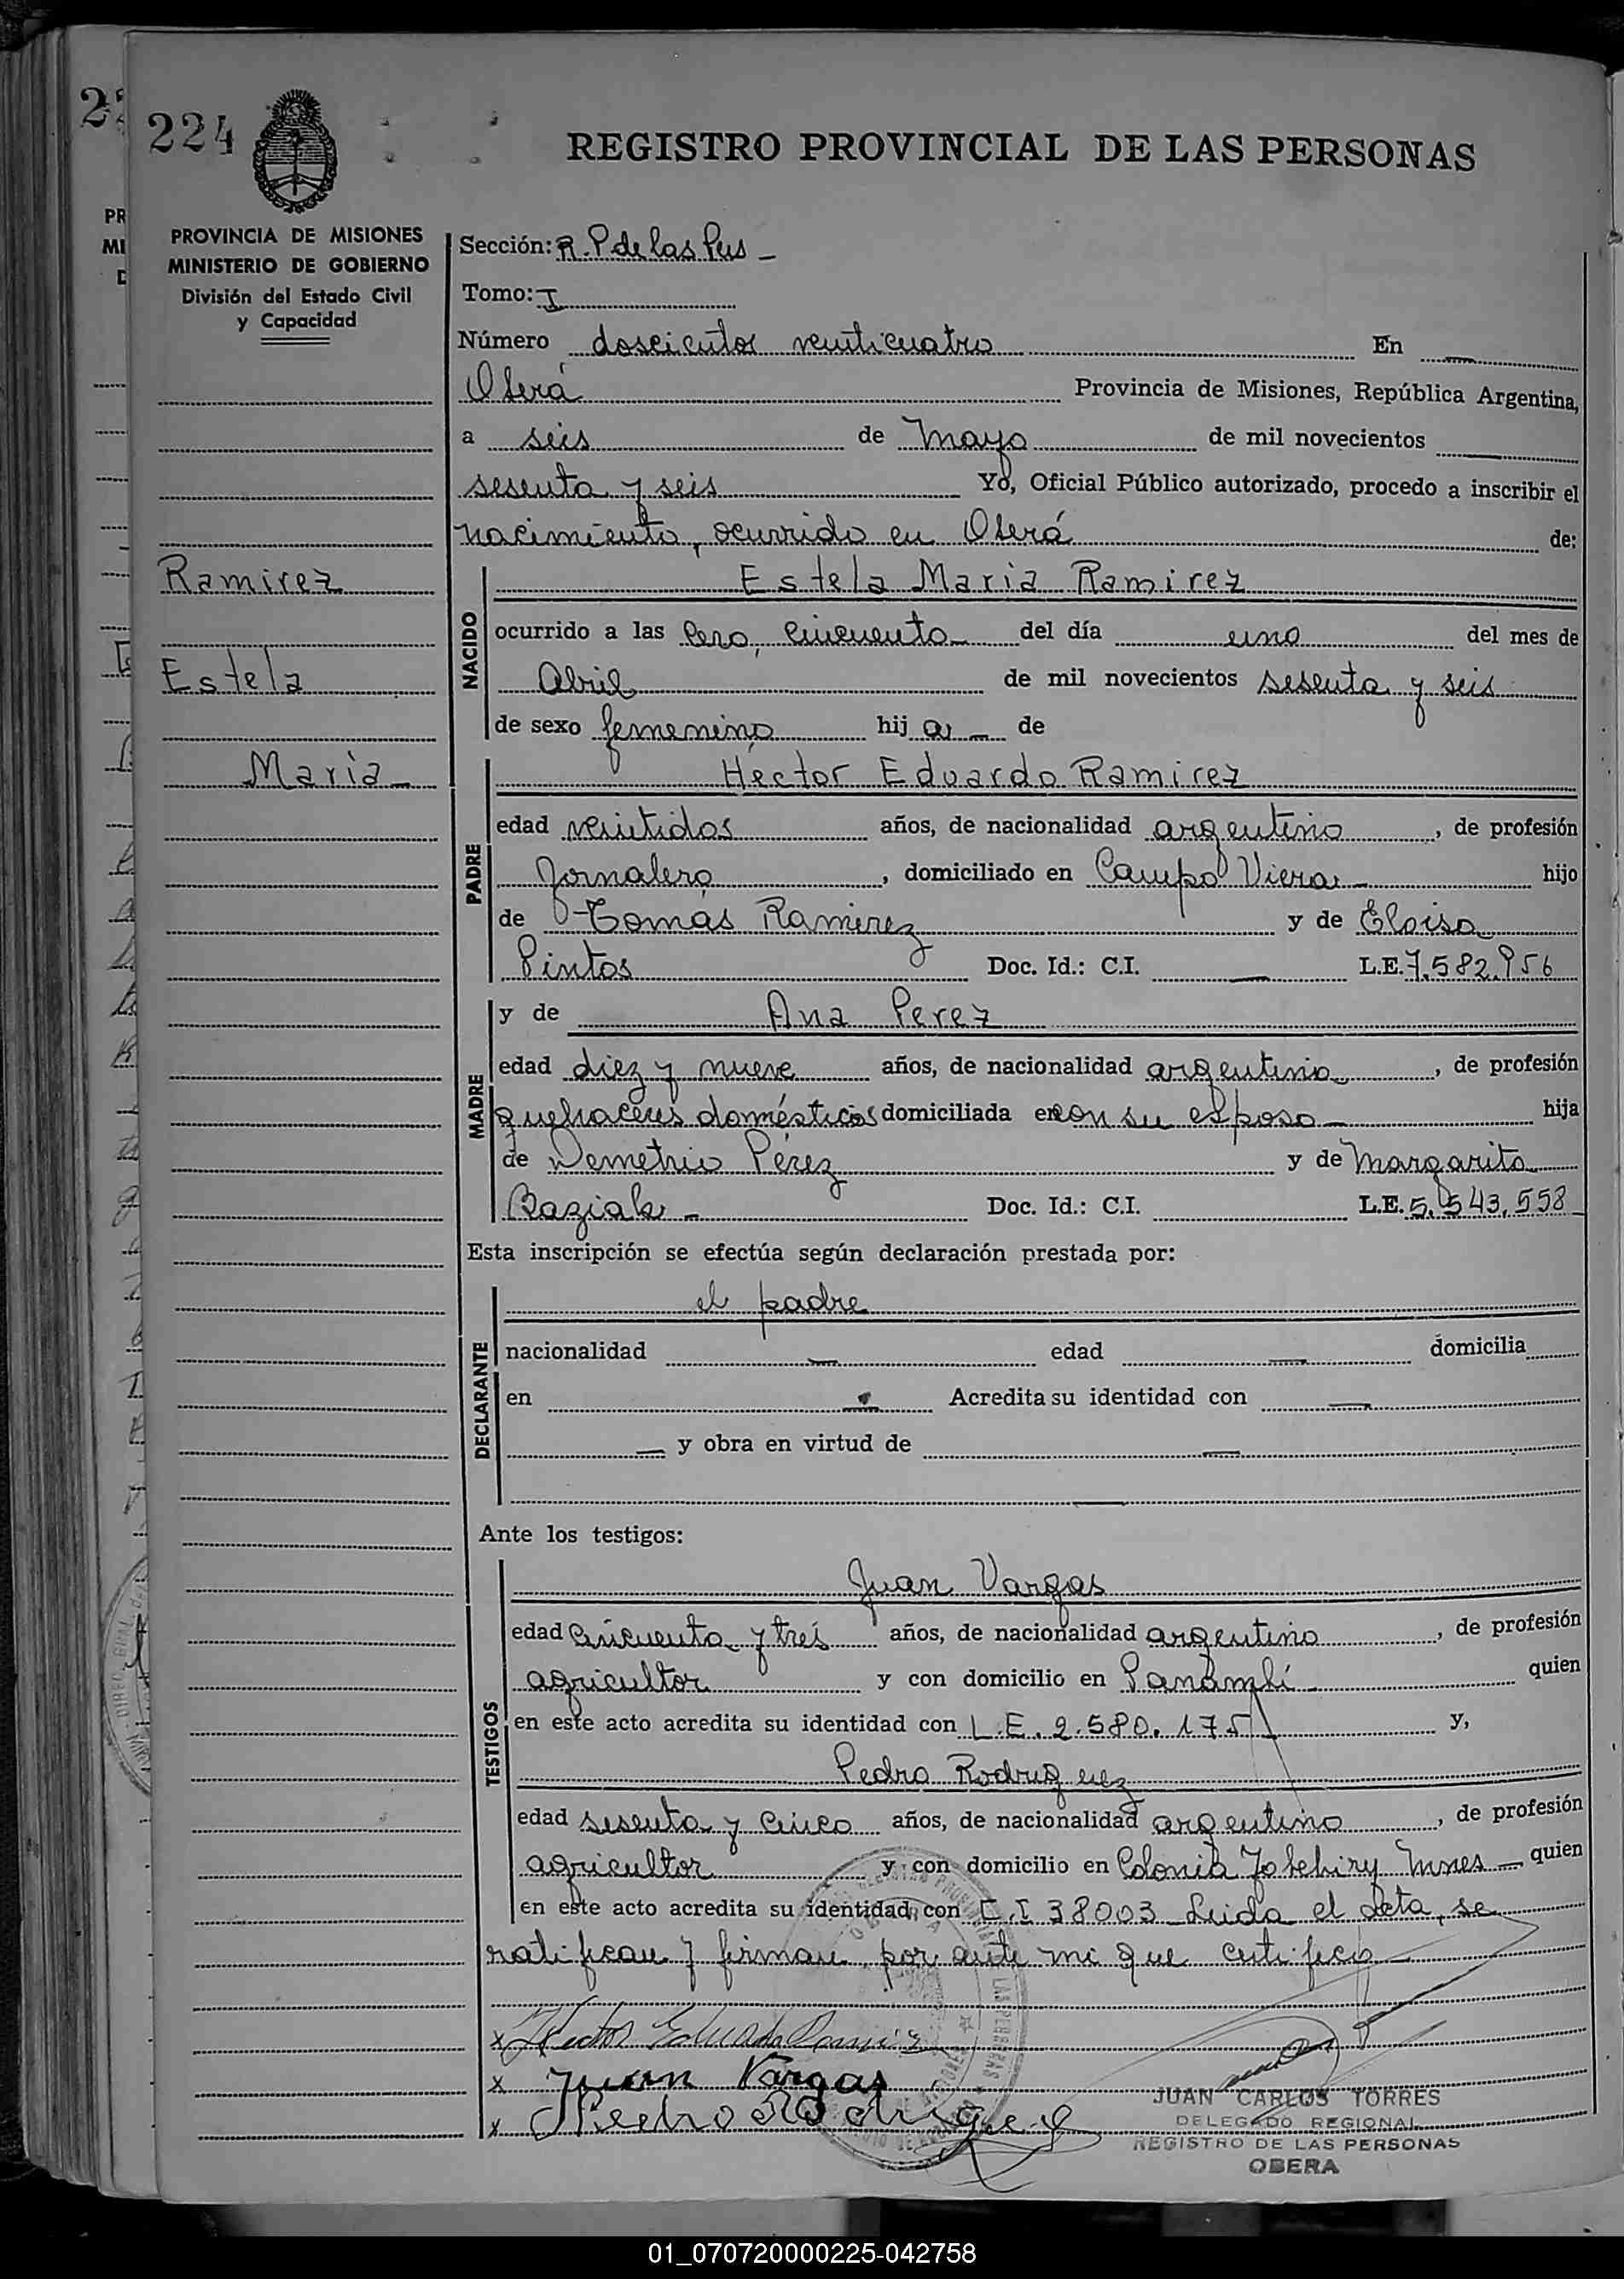 224
REGISTRO PROVINCIAL DE LAS PERSONAS
PROVINCIA DE MISIONES
MINISTERIO DE GOBIERNO
División del Estado Civil
y Capacidad
Ramirez
Estela
Maria
Sección: R. P de las Pers
Tomo: I
Número doscientos veinticuatro En
Oberá Provincia de Misiones, República Argentina,
a seis de Mayo de mil novecientos
sesenta y seis Yo, Oficial Público autorizado, procedo a inscribir el
nacimiento, ocurrido en Oberá de:
NACIDO
Estela Maria Ramirez
ocurrido a las Cero, Cincuenta del día uno del mes de
Abril de mil novecientos sesenta y seis
de sexo femenino hija de
PADRE
Hector Eduardo Ramirez
edad veintidos años, de nacionalidad argentino, de profesión
Jornalero, domiciliado en Campo Viera hijo
de Tomás Ramirez y de Eloisa
Pintos Doc. Id.: C.I. — L.E. 7.582.956
MADRE
y de Ana Perez
edad diez y nueve años, de nacionalidad argentina, de profesión
quehaceres domésticos domiciliada en con su esposo hija
de Demetrio Pérez y de Margarita
Doc. Id.: C.I. L.E. 5.543.558
Esta inscripción se efectúa según declaración prestada por:
DECLARANTE
el padre
nacionalidad — edad — domicilia
en — Acredita su identidad con —
— y obra en virtud de —
Ante los testigos:
TESTIGOS
Juan Vargas
edad Cincuenta y tres años, de nacionalidad argentino, de profesión
agricultor y con domicilio en Panambí quien
en este acto acredita su identidad con L.E. 2.580.175 y,
Pedro Rodriguez
edad sesenta y cinco años, de nacionalidad argentino, de profesión
agricultor y con domicilio en Colonia Yabebiry Mnes quien
en este acto acredita su identidad con C.I 38003 Leida el acta, se
ratifican y firman por ante mi que certifico
x Hector Eduardo Ramirez
x Juan Vargas
x Pedro Rodriguez
JUAN CARLOS TORRES
DELEGADO REGIONAL
REGISTRO DE LAS PERSONAS
OBERA
01_070720000225-042758